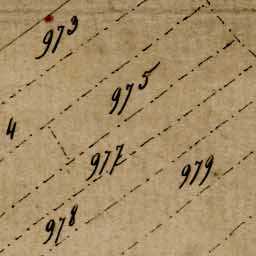 973
975
4
977
979
978